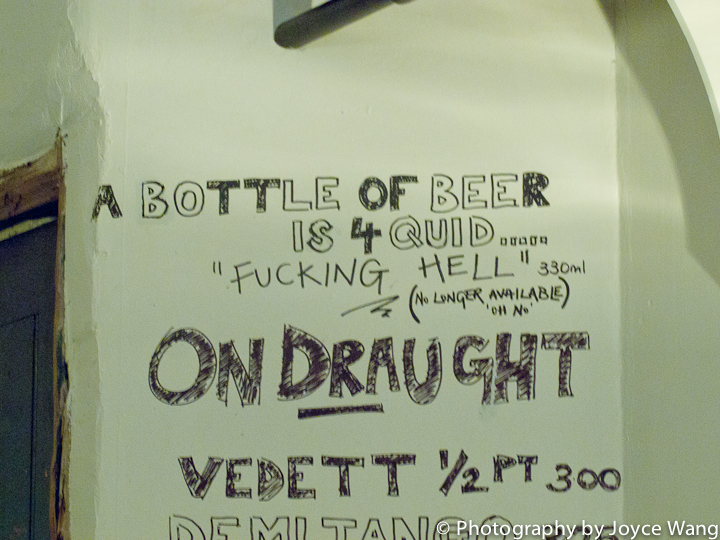 A BOTTLE OF BEER
IS 4 QUID.....
"FUCKING HELL" 330ml
(NO LONGER AVAILABLE)
'OH NO'
ON DRAUGHT
VEDETT 1/2 PT 300
DEMI TANGO
© Photography by Joyce Wang